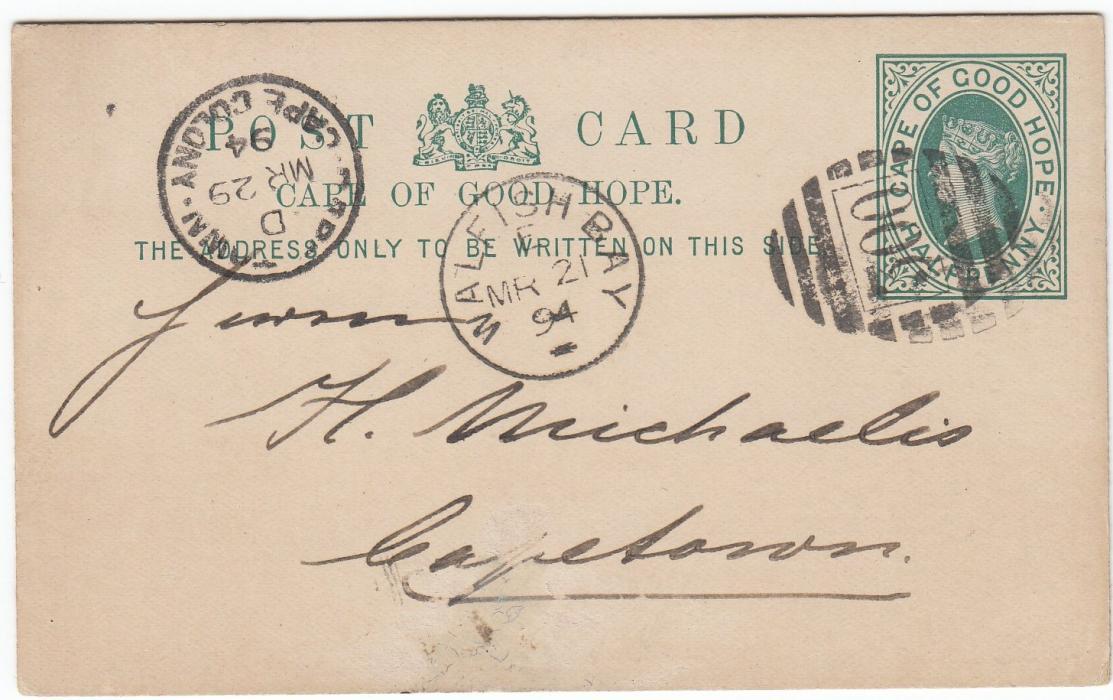 POST CARD
CAPE OF GOOD HOPE.
THE ADDRESS ONLY TO BE WRITTEN ON THIS SIDE
CAPE OF GOOD HOPE.
HALF PENNY
CAPE COLONY
D
MR 29
94
WALFISH BAY
MR 21
94
300
Herrn
H. Michaelis
Capetown.